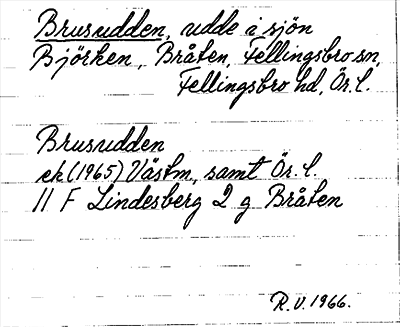 Brusudden, udde i sjön
Björken, Bråten, Fellingsbro sn,
Fellingsbro hd, Ör. l.
Brusudden
ek (1965) Västm, samt Ör. l.
11 F Lindesberg 2 g Bråten
R.V. 1966.